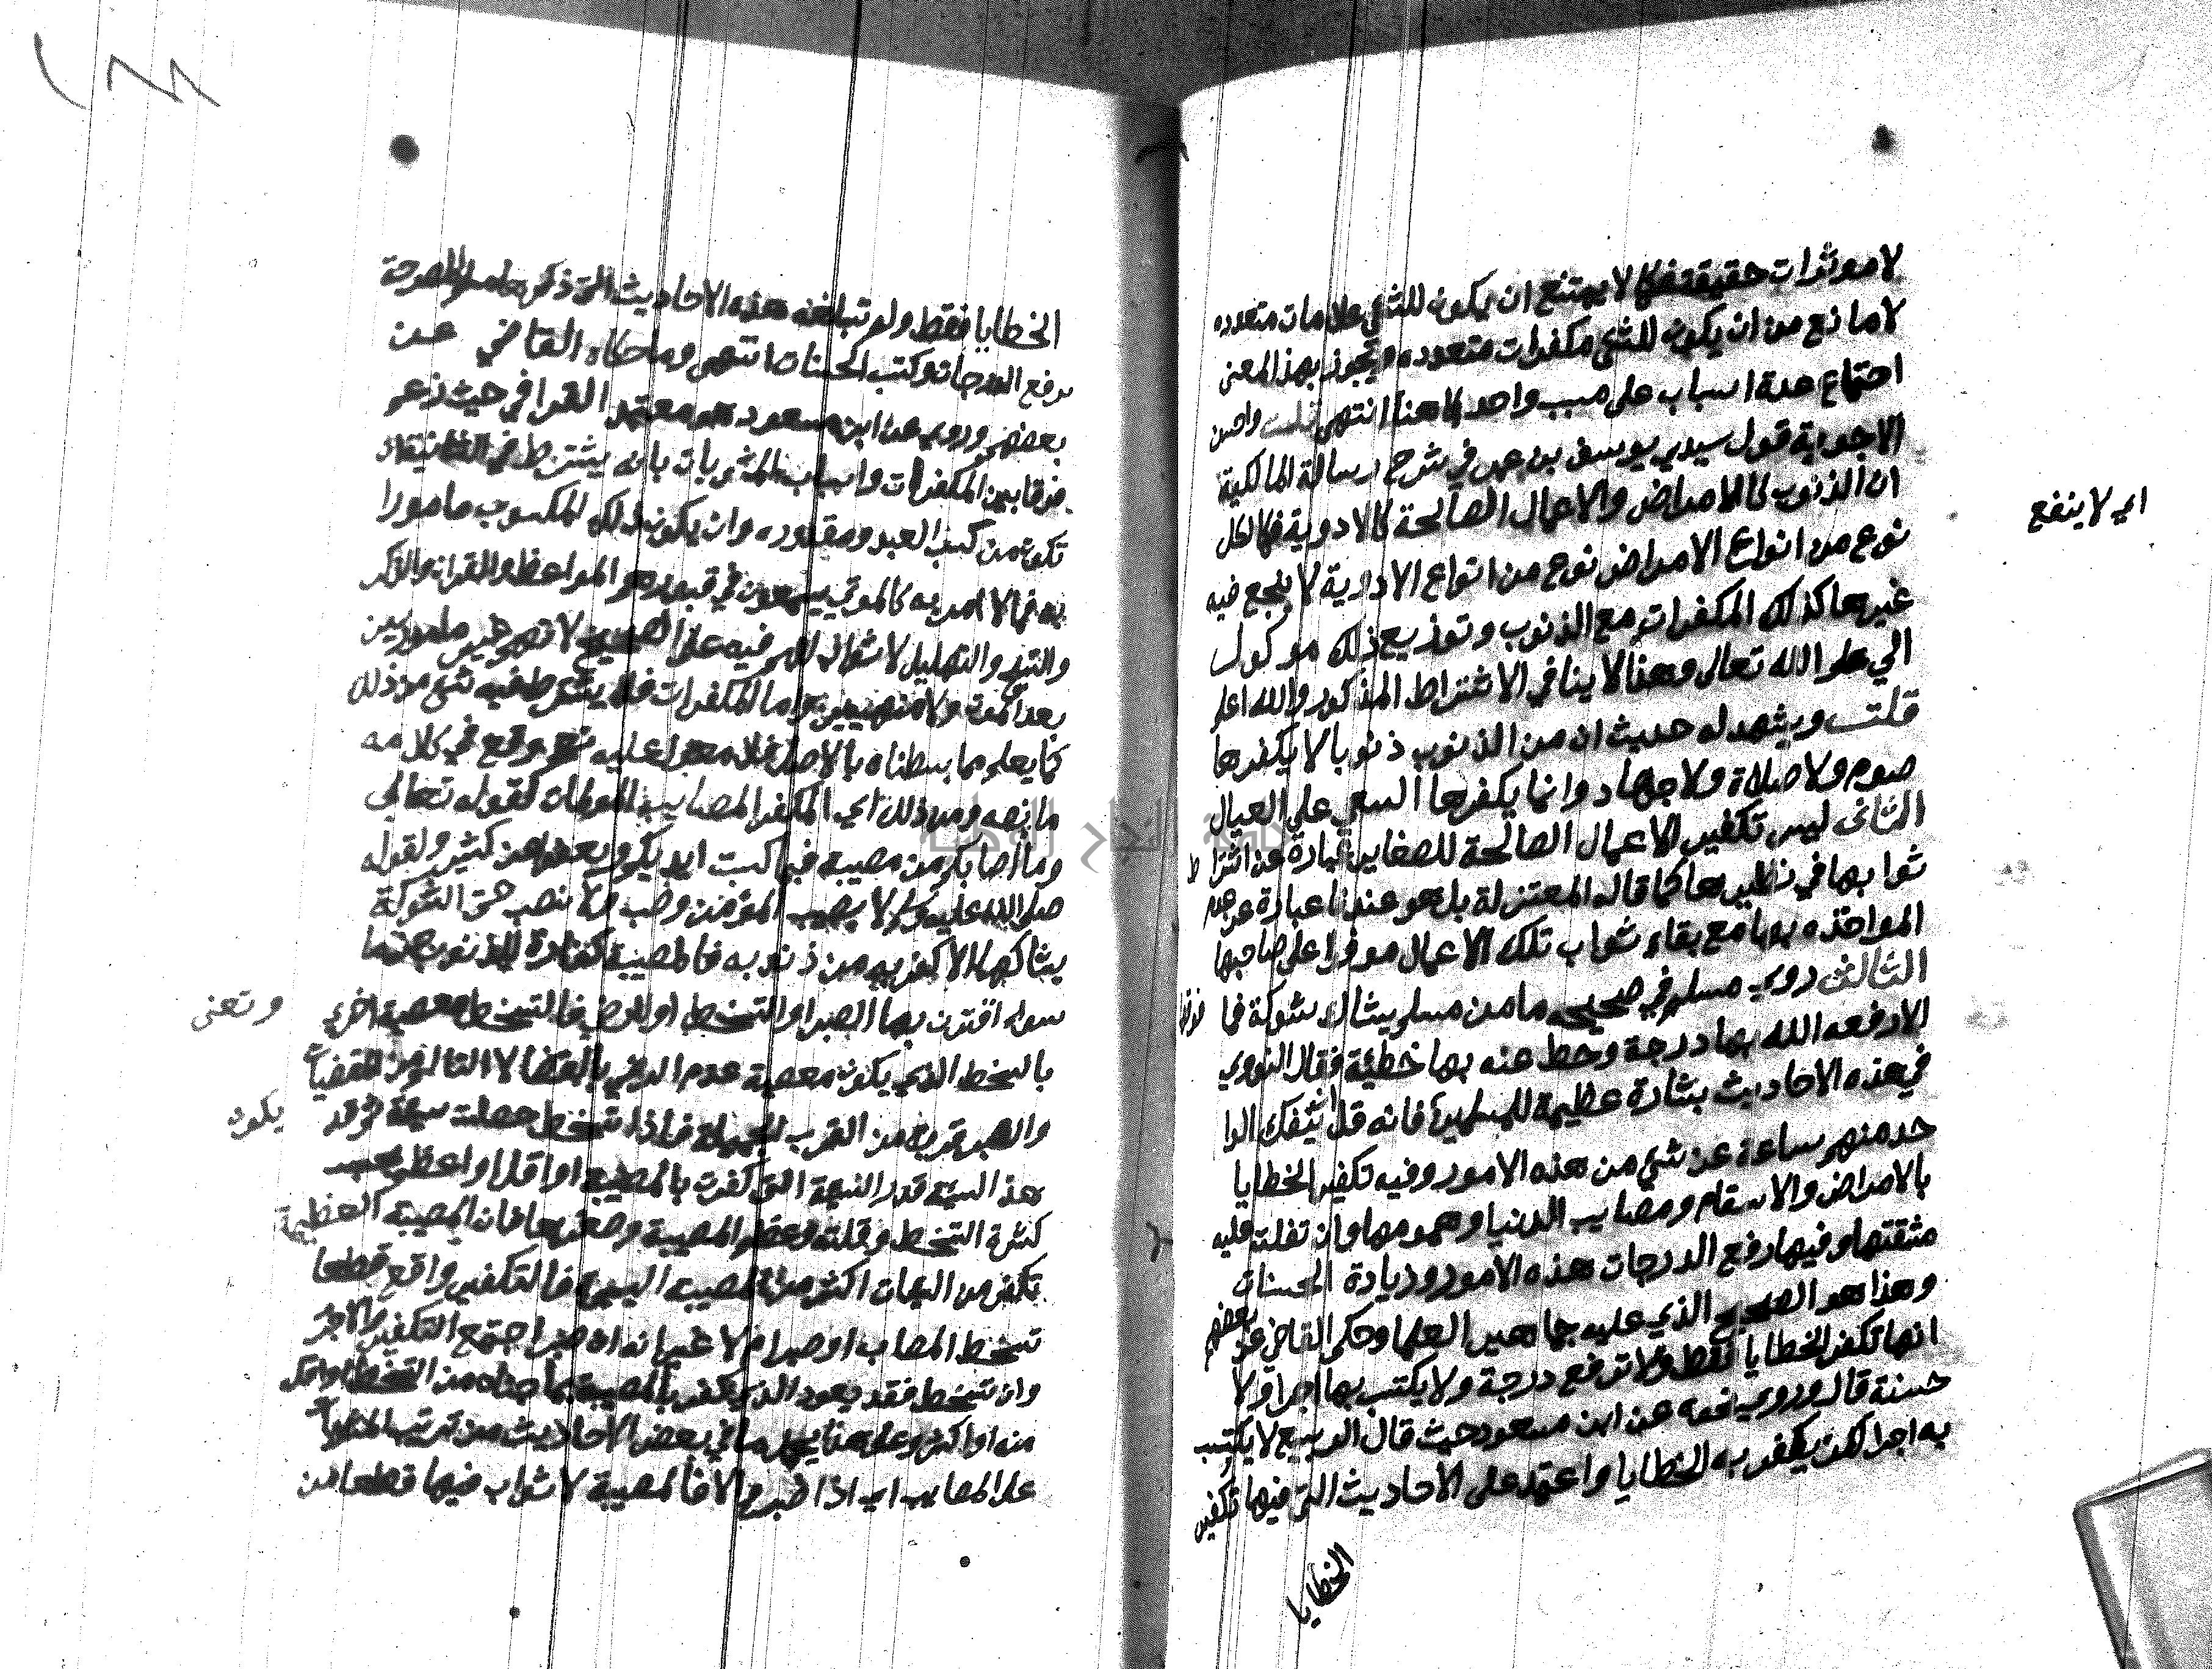 لا موثرات حقيقة فكما لا يمتنع ان يكون للشي علامات متعدده
لا مانع من ان يكون للشي مكفرات متعدده ويجوز بهذا المعنى
اجتماع عدة اسباب على مسبب واحد كما هنا انتهى قلت واحسن
الاجوبة قول سيدي يوسف بن عمر في شرح رسالة المالكية
ان الذنوب كالامراض والاعمال الصالحة كالادوية فكما لكل
نوع من انواع الامراض نوع من انواع الادوية لا ينجع فيه
اي لا ينفع
غيرها كذلك المكفرات مع الذنوب وتوزيع ذلك موكول
الي علم الله تعالى وهذا لا ينافي الاشتراط المذكور والله اعلم
قلت ويشهد له حديث ان من الذنوب ذنوبا لا يكفرها
صوم ولا صلاة ولا جهاد وانما يكفرها السعي على العيال
الثاني ليس تكفير الاعمال الصالحة للصغاير عبارة عن اشتراط
ثوابها في نظيرها كما قاله المعتزلة بل هو عندنا عبارة عن عدم
المواخذه بها مع بقاء ثواب تلك الاعمال موفرا على صاحبها
الثالث روي مسلم في صحيحه ما من مسلم يشاك بشوكة فما فوقها
الا رفعه الله بها درجة وحط عنه بها خطيئة فقال النووي
في هذه الاحاديث بشارة عظيمة للمسلمين فانه قل ان ينفك الوا
حد منهم ساعة عن شي من هذه الامور وفيه تكفير الخطايا
بالامراض والاسقام ومصايب الدنيا وهمومها وان تقلت قليه
مشقتها وفيها رفع الدرجات هذه الامور وزيادة الحسنات
وهذا هو الصحيح الذي عليه جماهير العلما وحكى القاضي عن بعضهم
انها تكفر الخطايا فقط ولا ترفع درجة ولا يكتب بها اجرا ولا
حسنة قال وروي نحوه عن ابن مسعود حيث قال الوجع لا يكتب
به اجرا لكن يكفر به الخطايا واعتمد على الاحاديث التي فيها تكفير
الخطايا
الخطايا فقط ولم تبلغه هذه الاحاديث التي ذكرها مسلم المصرحة
برفع الدرجات وكتب الحسنات انتهى وما حكاه القاضي عن
بعضهم وروي عن ابن مسعود هو معتمد القرافي حيث زعم
فرقا بين المكفرات واسباب المثوبات بانه يشترط في الثانية ان
تكون من كسب العبد ومقدوره وان يكون ذلك المكسوب مامورا
به فما لا امر به كالموتى يسمعون في قبورهم المواعظ والقران والذكر
والتسبيح والتهليل لا ثواب لهم فيه على الصحيح لانهم غير مامورين
بعد الموت ولا منهيين واما المكفرات فلا يشترط فيه شي من ذلك
كما يعلم مما بسطناه بالاصل فلا معول عليه نعم وقع في كلامه
ما نصه ومن ذلك اي المكفر المصايب المولمات كقوله تعالي
وما اصابكم من مصيبة فبما كسبت ايديكم ويعفوا عن كثير ولقوله
صلى الله عليه وسلم لا يصيب المؤمن وصب ولا نصب حتى الشوكة
يشاكها الا كفر به من ذنوبه فالمصيبة كفارة للذنوب حتما
سواء اقترن بها الصبر او التسخط او الرضى فالتسخط معصية اخري
ونعني
بالسخط الذي يكون معصية عدم الرضى بالقضا لا التالم من المقضيات
والصبر قربة من القرب الجميلة فاذا تسخط حصلت سيئة ثم قد
يكون
هذا السيئة قدر السيئة التي كفرت بالمصيبة او اقل او اعظم بحسب
كثرة التسخط وقلته وعظم المصيبة وصغرها فان المصيبة العظيمة
تكفر من السيئات اكثر من المصيبة اليسيرة فالتكفير واقع قطعا
تسخط المصاب او صبر ام لا غير انه ان صبر اجتمع التكفير والاجر
وان تسخط فقد يعود الذي كفر بالمصيبة بما جناه من التسخط او اقل
منه او اكثر وعلى هذا يحمل ما في بعض الاحاديث من ترتيب المثوبات
على المصايب اي اذا صبر والا فالمصيبة لا ثواب فيها قطعا من